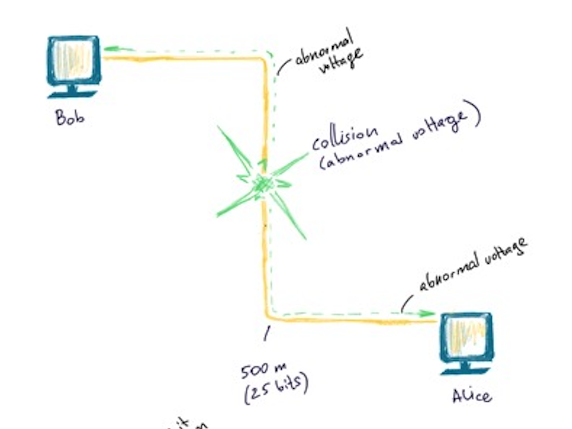 abnormal
voltage
Bob
collision
(abnormal voltage)
abnormal voltage
500 m
(25 bits)
Alice